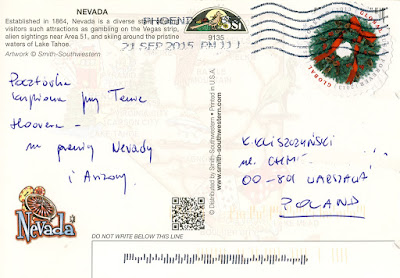 NEVADA
Established in 1864, Nevada is a diverse
visitors such attractions as gambling on the Vegas strip,
alien sightings near Area 51, and skiing around the pristine
waters of Lake Tahoe.
Artwork © Smith-Southwestern
PHOENIX
21 SEP 2015 PM 11 1
9135
GLOBAL
Pocztówka
kupiona przy Tamie
Hoovera -
na granicy Nevady
i Arizony.
© Distributed by Smith-Southwestern • Printed in U.S.A.
www.smith-southwestern.com
K. KLISZCZYŃSKI
ul.
00-801 WARSZAWA
POLAND
Nevada
DO NOT WRITE BELOW THIS LINE